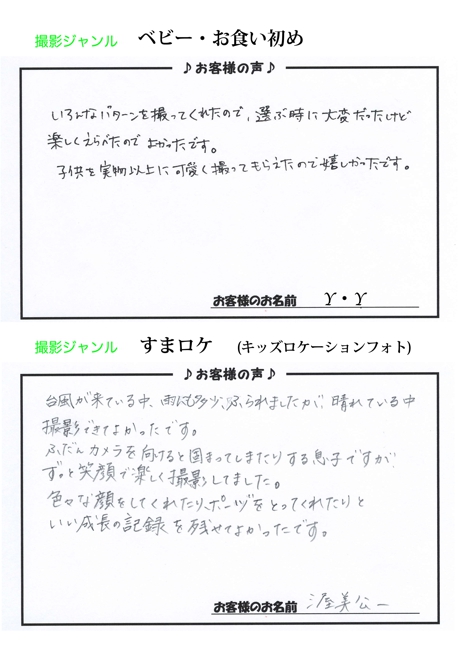 撮影ジャンル ベビー・お食い初め
♪お客様の声♪
いろんなパターンを撮ってくれたので、選ぶ時に大変だったけど
楽しくえらべたので よかったです。
子供を実物以上に可愛く撮ってもらえたので嬉しかったです。
お客様のお名前 Y・Y
撮影ジャンル すまロケ (キッズロケーションフォト)
♪お客様の声♪
台風が来ている中、雨にも多少、ふられましたが、晴れている中
撮影できてよかったです。
ふだんカメラを向けると固まってしまたりする息子ですが
ずっと笑顔で楽しく撮影してました。
色々な顔をしてくれたり、ポーズをとってくれたりと
いい成長の記録を残せてよかったです。
お客様のお名前 渥美公一